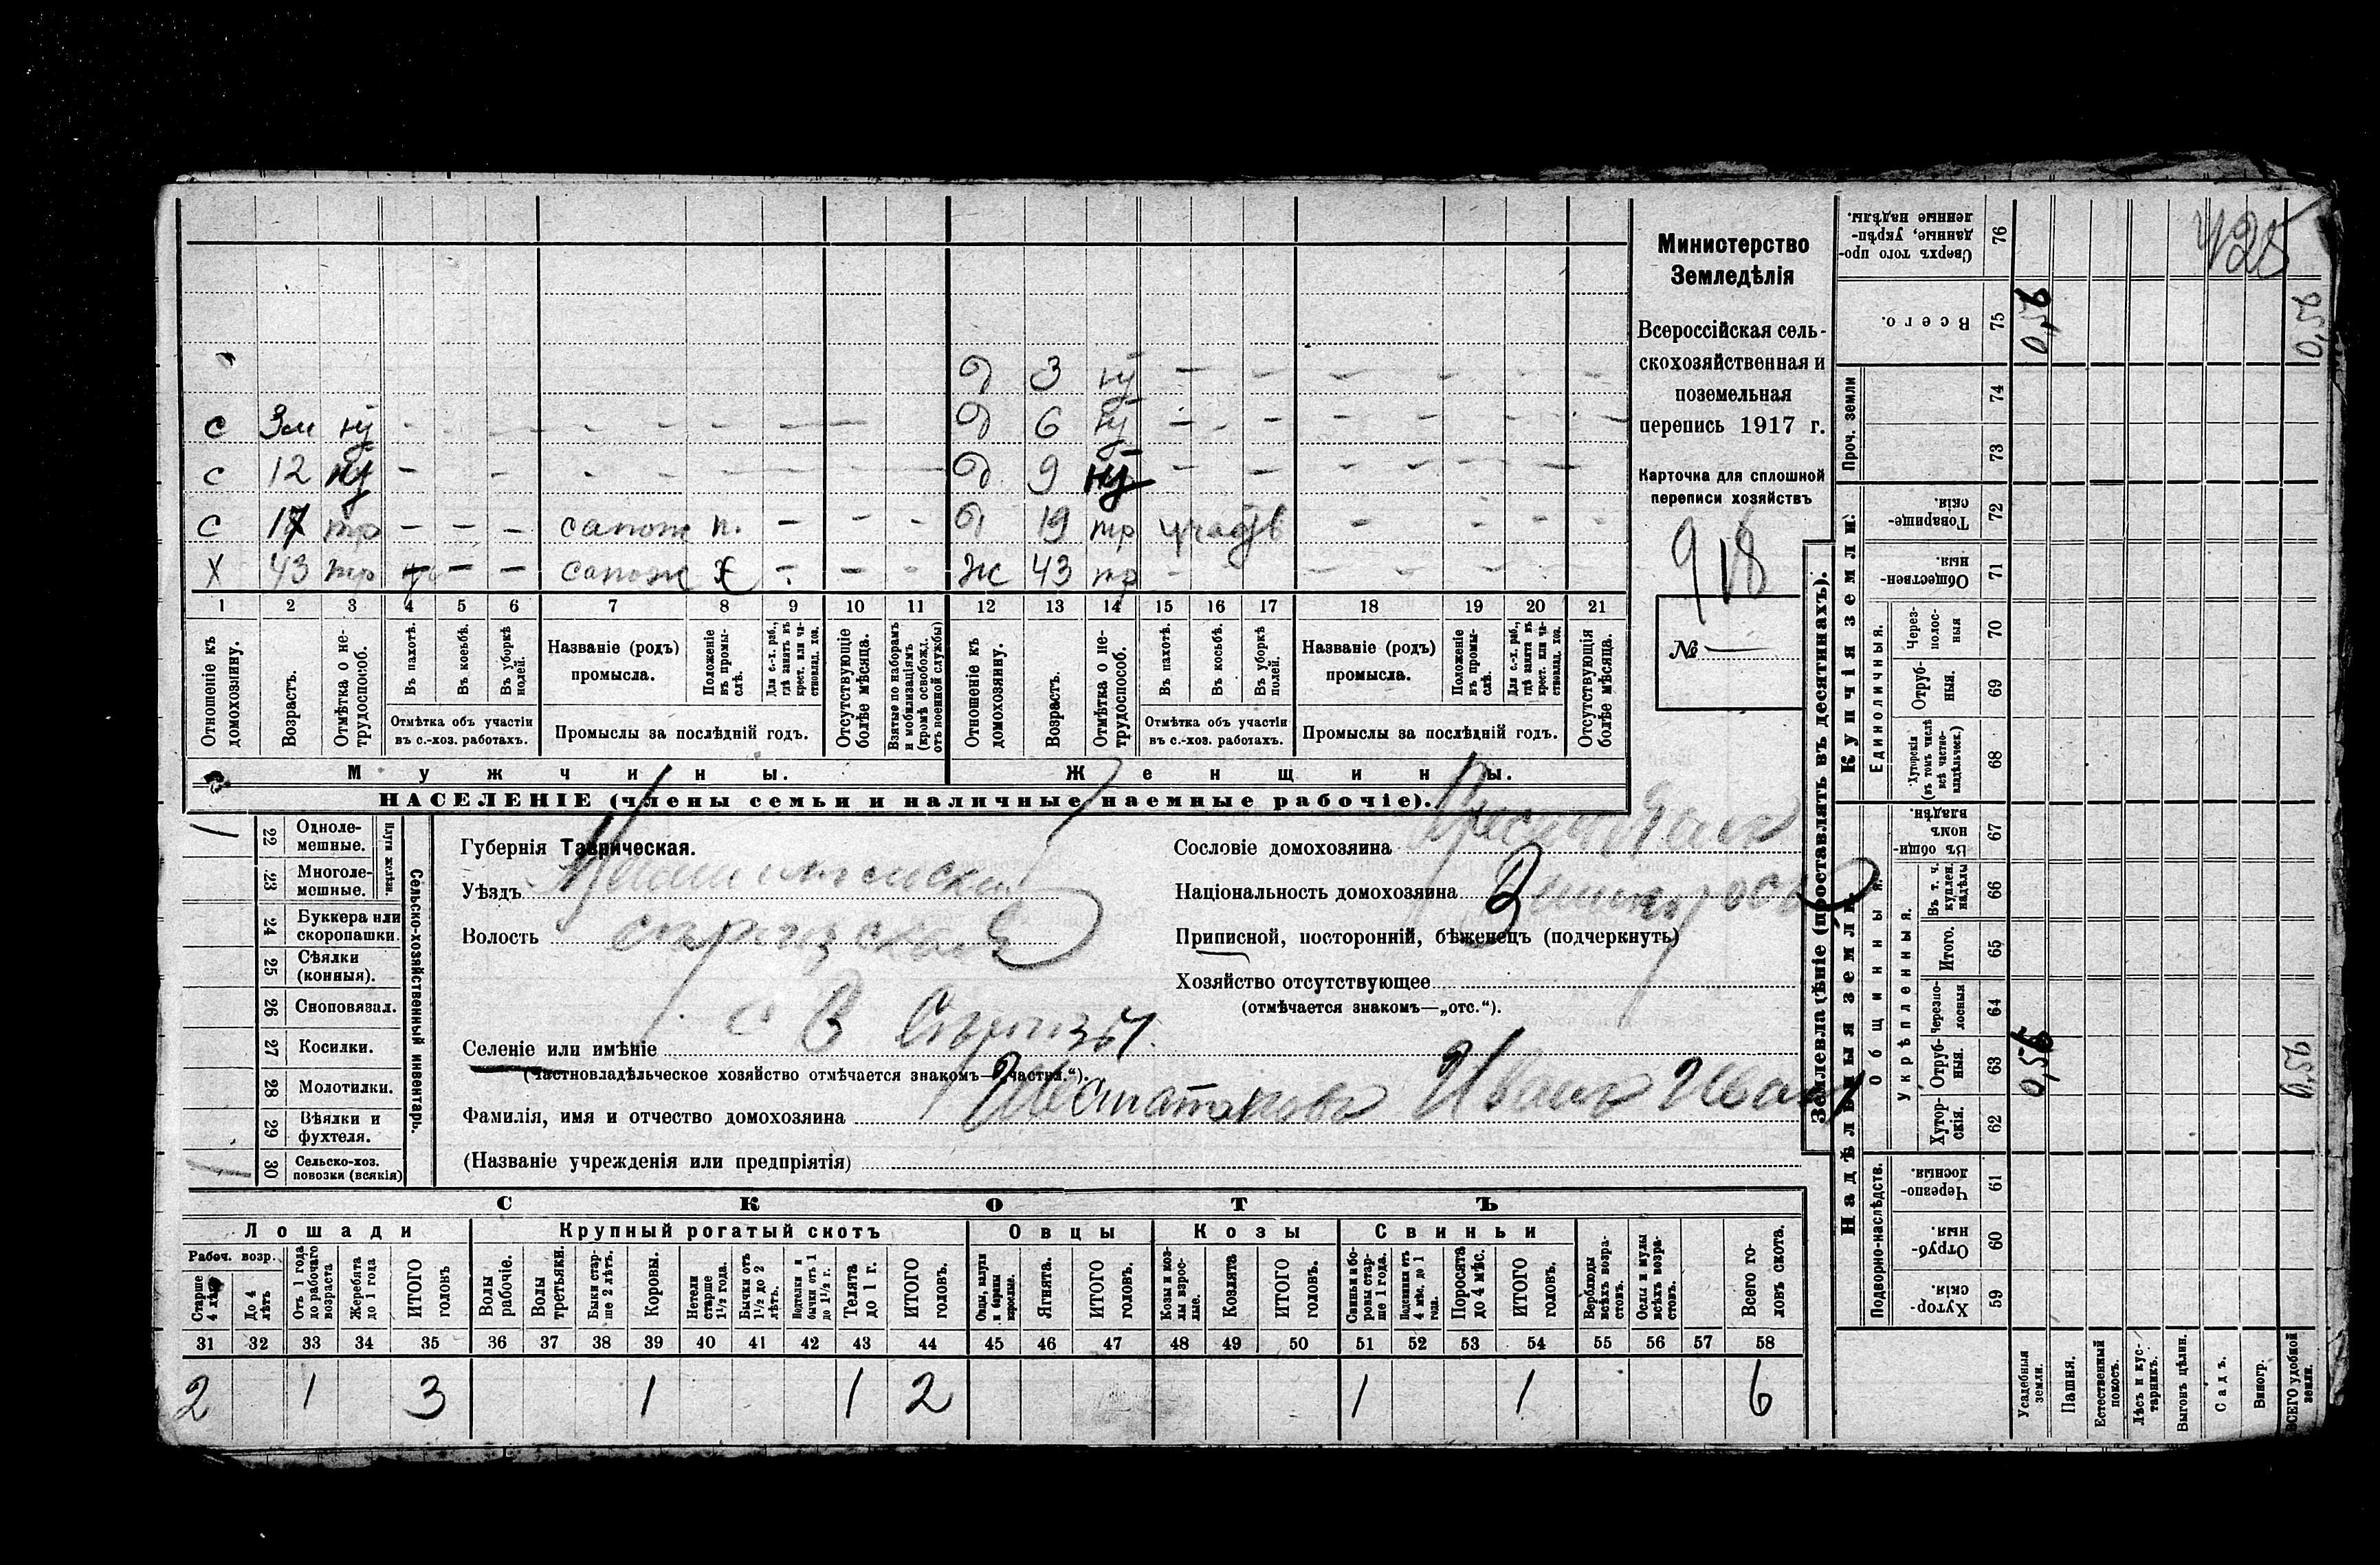 Министерство
Земледѣлія
Всероссійская сель-
скохозяйственная и
поземельная
перепись 1917 г.
Карточка для сплошной
переписи хозяйствъ
918
№ —
425
д 3 —
с 3м — д 6 —
с 12 — д 9 —
с 17 тр — — — сапож п. — — — д 19 тр
Х 43 тр — — сапож Х — — — ж 43 тр —
1 2 3 4 5 6 7 8 9 10 11 12 13 14 15 16 17 18 19 20 21
Отношеніе къ домохозяину.
Возрастъ.
Отмѣтка о не-трудоспособ.
Въ пахотѣ.
Въ косьбѣ.
Въ уборкѣ полей.
Отмѣтка объ участіи въ с.-хоз. работахъ.
Названіе (родъ) промысла.
Положеніе въ промы-слѣ.
Для с.-х. раб., гдѣ занятъ въ крест. или ча-стновлад. хоз.
Промыслы за послѣдній годъ.
Отсутствующіе болѣе мѣсяца.
Взятые по наборамъ и мобилизаціямъ (кромѣ освобожд. отъ военной службы)
Отношеніе къ домохозяину.
Возрастъ.
Отмѣтка о не-трудоспособ.
Въ пахотѣ.
Въ косьбѣ.
Въ уборкѣ полей.
Отмѣтка объ участіи въ с.-хоз. работахъ.
Названіе (родъ) промысла.
Положеніе въ промы-слѣ.
Для с.-х. раб., гдѣ занята въ крест. или ча-стновлад. хоз.
Промыслы за послѣдній годъ.
Отсутствующія болѣе мѣсяца.
Мужчины.
Женщины.
НАСЕЛЕНІЕ (члены семьи и наличные наемные рабочіе).
Сельско-хозяйственный инвентарь.
Плуги желѣзн.
22 Одноле-мешные. 1
23 Многоле-мешные.
24 Буккера или скоропашки.
25 Сѣялки (конныя).
26 Сноповязал.
27 Косилки.
28 Молотилки.
29 Вѣялки и фухтеля.
30 Сельско-хоз. повозки (всякія) 1
Губернія Таврическая.
Уѣздъ
Волость
Селеніе или имѣніе
(Частновладѣльческое хозяйство отмѣчается знакомъ—„частн.“).
Фамилія, имя и отчество домохозяина Иванъ Иван
(Названіе учрежденія или предпріятія)
Сословіе домохозяина
Національность домохозяина
Приписной, посторонній, бѣженецъ (подчеркнуть)
Хозяйство отсутствующее
(отмѣчается знакомъ—„отс.“).
СКОТЪ
Лошади
Крупный рогатый скотъ
Овцы
Козы
Свиньи
Рабоч. возр.
Старше 4 лѣтъ
До 4 лѣтъ
Отъ 1 года до рабочаго возраста
Жеребята до 1 года
ИТОГО головъ
Волы рабочіе.
Волы третьяки.
Быки стар-ше 2 лѣтъ.
Коровы.
Нетели старше 1½ года.
Бычки отъ 1½ до 2 лѣтъ.
Нетелки и бычки отъ 1 до 1½ г.
Телята до 1 г.
ИТОГО головъ.
Овцы, валухи и бараны взрослые.
Ягнята.
ИТОГО головъ.
Козы и коз-лы взрос-лые.
Козлята
ИТОГО головъ.
Свиньи и бо-ровы стар-ше 1 года.
Подсвинки отъ 4 мѣс. до 1 года.
Поросята до 4 мѣс.
ИТОГО головъ.
Верблюды всѣхъ возра-стовъ.
Ослы и мулы всѣхъ возра-стовъ.
Всего го-ловъ скота.
31 32 33 34 35 36 37 38 39 40 41 42 43 44 45 46 47 48 49 50 51 52 53 54 55 56 57 58
2 1 3 1 1 2 1 1 6
Землевладѣніе (проставлять въ десятинахъ).
Надѣльныя земли.
Купчія земли.
Проч. земли
Подворно-наслѣдств.
Общинныя.
Укрѣпленныя.
Единоличныя.
76 Сверхъ того про-данные, укрѣп-ленные надѣлы.
75 Всего. 0,56 0,56
74
73
72 Товарище-скія
71 Обществен-ныя.
70 Через-полос-ныя
69 Отруб-ныя.
68 Хуторскія (въ томъ числѣ всѣ частно-владѣльческ.)
67 Въ общин-номъ владѣн.
66 Въ т. ч. куплен. надѣлы
65 Итого.
64 Черезпо-лосныя
63 Отруб-ныя. 0,56 0,56
62 Хутор-скія.
61 Черезпо-лосныя.
60 Отруб-ныя.
59 Хутор-скія.
Усадебныя земли.
Пашня.
Естественный покосъ.
Лѣсъ и кус-тарникъ.
Выгонъ цѣлин.
Садъ.
Виногр.
ВСЕГО удобной земли.